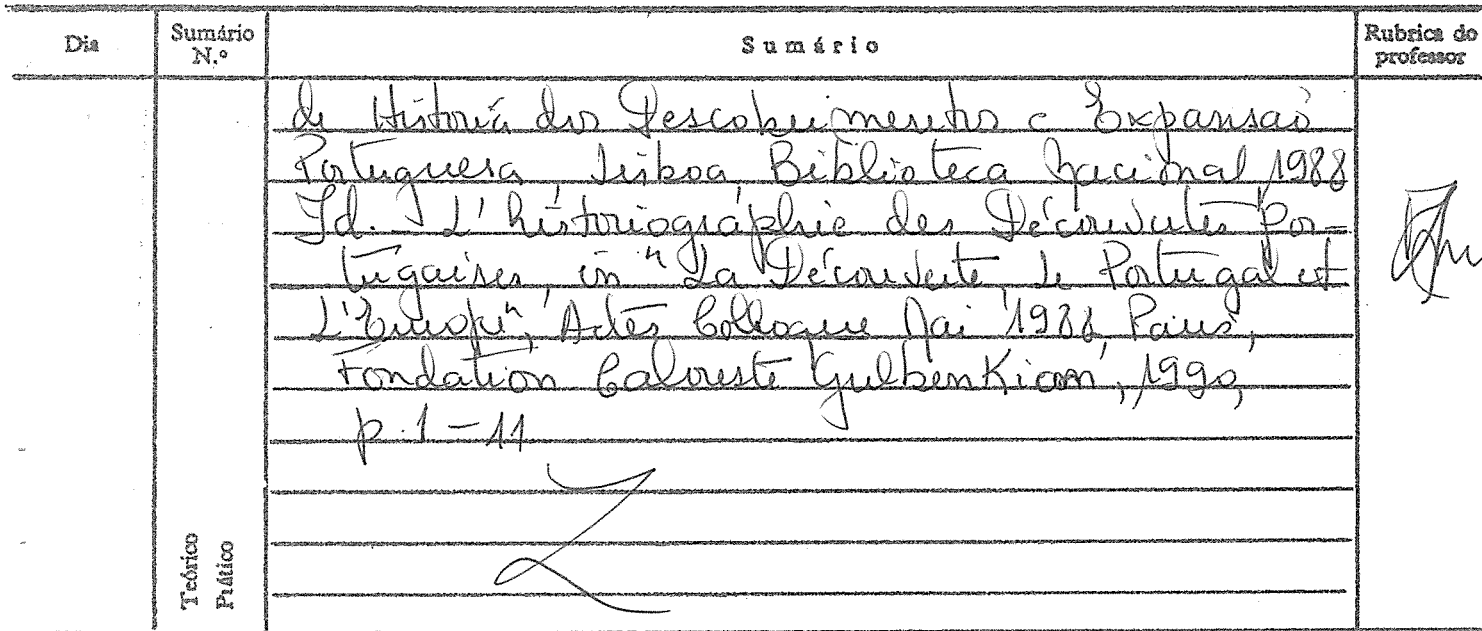 Dia
Sumário N.º
Sumário
Rubrica do professor
de História dos Descobrimentos e Expansaõ
Portuguesa Lisboa Biblioteca Nacional, 1988
Id. L'historiographie des Découvertes Por-
tugaises, in "La Découverte, le Portugal et
L'Europe", Actes Colloque Mai 1988, Paris,
Fondation Calouste Gulbenkian, 1990,
p. 1-11
Teórico
Prático